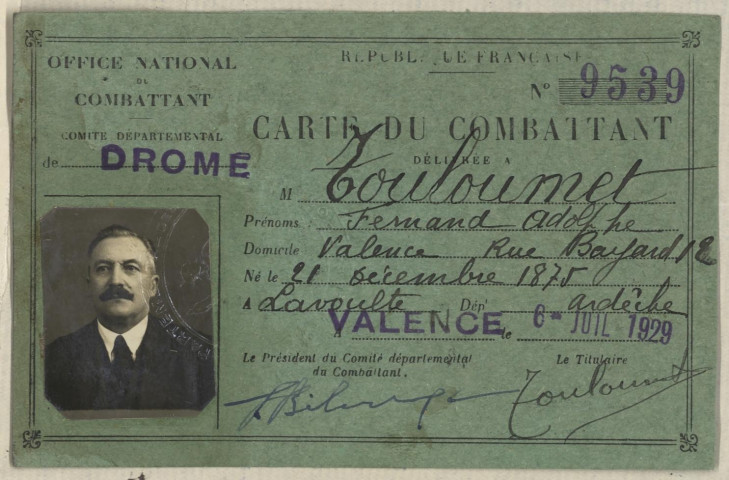 OFFICE NATIONAL
DU
COMBATTANT
COMITÉ DÉPARTEMENTAL
de DROME
RÉPUBLIQUE FRANÇAISE
N° 9539
CARTE DU COMBATTANT
DÉLIVRÉE A
M Touloumet
Prénoms : Fernand Adolphe
Domicile Valence Rue Bayard 12
Né le 21 décembre 1875
A Lavoulte Dép' ardèche
A VALENCE le 6 - JUIL 1929
Le Président du Comité départemental
du Combattant.
Le Titulaire
Touloumet